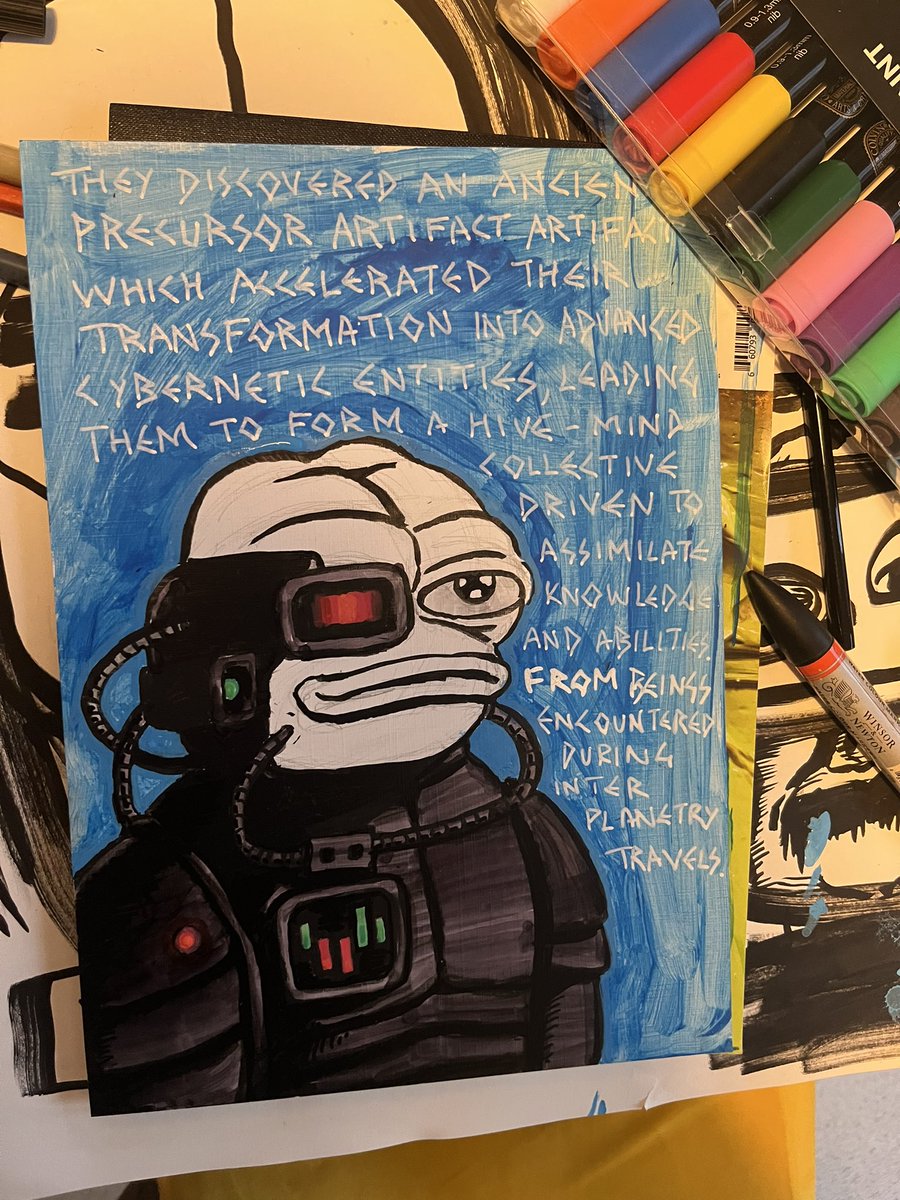 THEY DISCOVERED AN ANCIEN
PRECURSOR ARTIFACT ARTIFACT
WHICH ACCELERATED THEIR
TRANSFORMATION INTO ADVANCED
CYBERNETIC ENTITIES, LEADING
THEM TO FORM A HIVE-MIND
COLLECTIVE
DRIVEN TO
ASSIMILATE
KNOWLEDGE
AND ABILITIES.
FROM BEINGS
ENCOUNTERED
DURING
INTER
PLANETRY
TRAVELS.
0.9-1.3m
nib
NT
WINSOR
NEWTON
6 60793